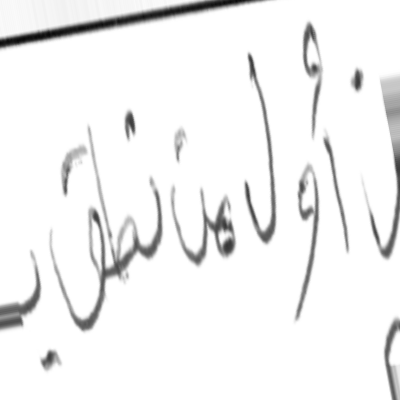 أول من نطق